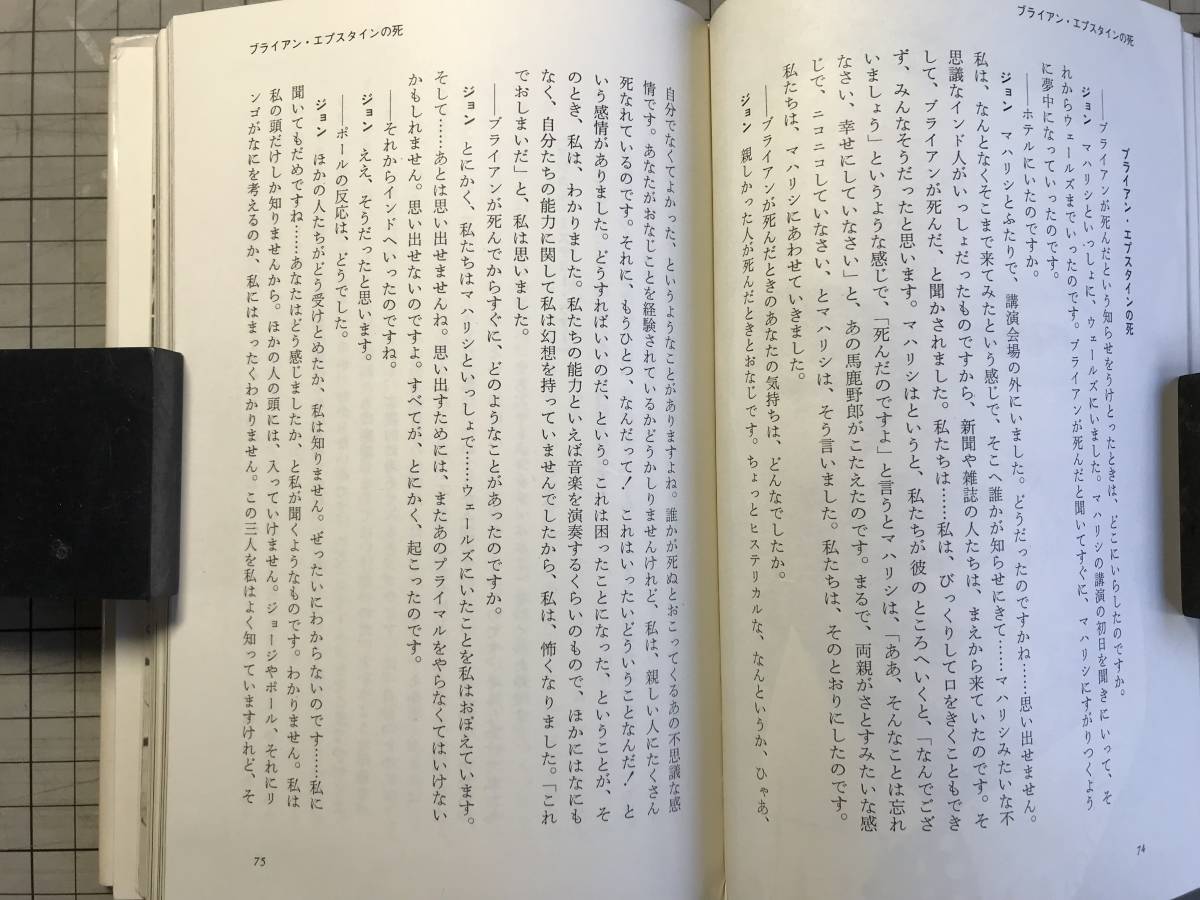 ブライアン・エプスタインの死
ブライアン・エプスタインの死
――ブライアンが死んだという知らせをうけとったときは、どこにいらしたのですか。
ジョン　マハリシといっしょに、ウェールズにいました。マハリシの講演の初日を聞きにいって、そ
れからウェールズまでいったのです。ブライアンが死んだと聞いてすぐに、マハリシにすがりつくよう
に夢中になっていったのです。
――ホテルにいたのですか。
ジョン　マハリシとふたりで、講演会場の外にいました。どうだったのですかね……思い出せません。
私は、なんとなくそこまで来てみたという感じで、そこへ誰かが知らせにきて……マハリシみたいな不
思議なインド人がいっしょだったものですから、新聞や雑誌の人たちは、まえから来ていたのです。そ
して、ブライアンが死んだ、と聞かされました。私たちは……私は、びっくりして口をきくこともでき
ず、みんなそうだったと思います。マハリシはというと、私たちが彼のところへいくと、「なんでござ
いましょう」というような感じで、「死んだのですよ」と言うとマハリシは、「ああ、そんなことは忘れ
なさい、幸せにしていなさい」と、あの馬鹿野郎がこたえたのです。まるで、両親がさとすみたいな感
じで、ニコニコしていなさい、とマハリシは、そう言いました。私たちは、そのとおりにしたのです。
私たちは、マハリシにあわせていきました。
――ブライアンが死んだときのあなたの気持ちは、どんなでしたか。
ジョン　親しかった人が死んだときとおなじです。ちょっとヒステリカルな、なんというか、ひゃあ、
74
ブライアン・エプスタインの死
自分でなくてよかった、というようなことがありますよね。誰かが死ぬとおこってくるあの不思議な感
情です。あなたがおなじことを経験されているかどうかしりませんけれど、私は、親しい人にたくさん
死なれているのです。それに、もうひとつ、なんだって！　これはいったいどういうことなんだ！　と
いう感情がありました。どうすればいいのだ、という。これは困ったことになった、ということが、そ
のとき、私は、わかりました。私たちの能力といえば音楽を演奏するくらいのもので、ほかにはなにも
なく、自分たちの能力に関して私は幻想を持っていませんでしたから、私は、怖くなりました。「これ
でおしまいだ」と、私は思いました。
――ブライアンが死んでからすぐに、どのようなことがあったのですか。
ジョン　とにかく、私たちはマハリシといっしょで……ウェールズにいたことを私はおぼえています。
そして……あとは思い出せませんね。思い出すためには、またあのプライマルをやらなくてはいけない
かもしれません。思い出せないのですよ。すべてが、とにかく、起こったのです。
――それからインドへいったのですね。
ジョン　ええ、そうだったと思います。
――ポールの反応は、どうでした。
ジョン　ほかの人たちがどう受けとめたか、私は知りません。ぜったいにわからないのです……私に
聞いてもだめですね……あなたはどう感じましたか、と私が聞くようなものです。わかりません。私は
私の頭だけしか知りませんから。ほかの人の頭には、入っていけません。ジョージやポール、それにリ
ンゴがなにを考えるのか、私にはまったくわかりません。この三人を私はよく知っていますけれど、そ
75